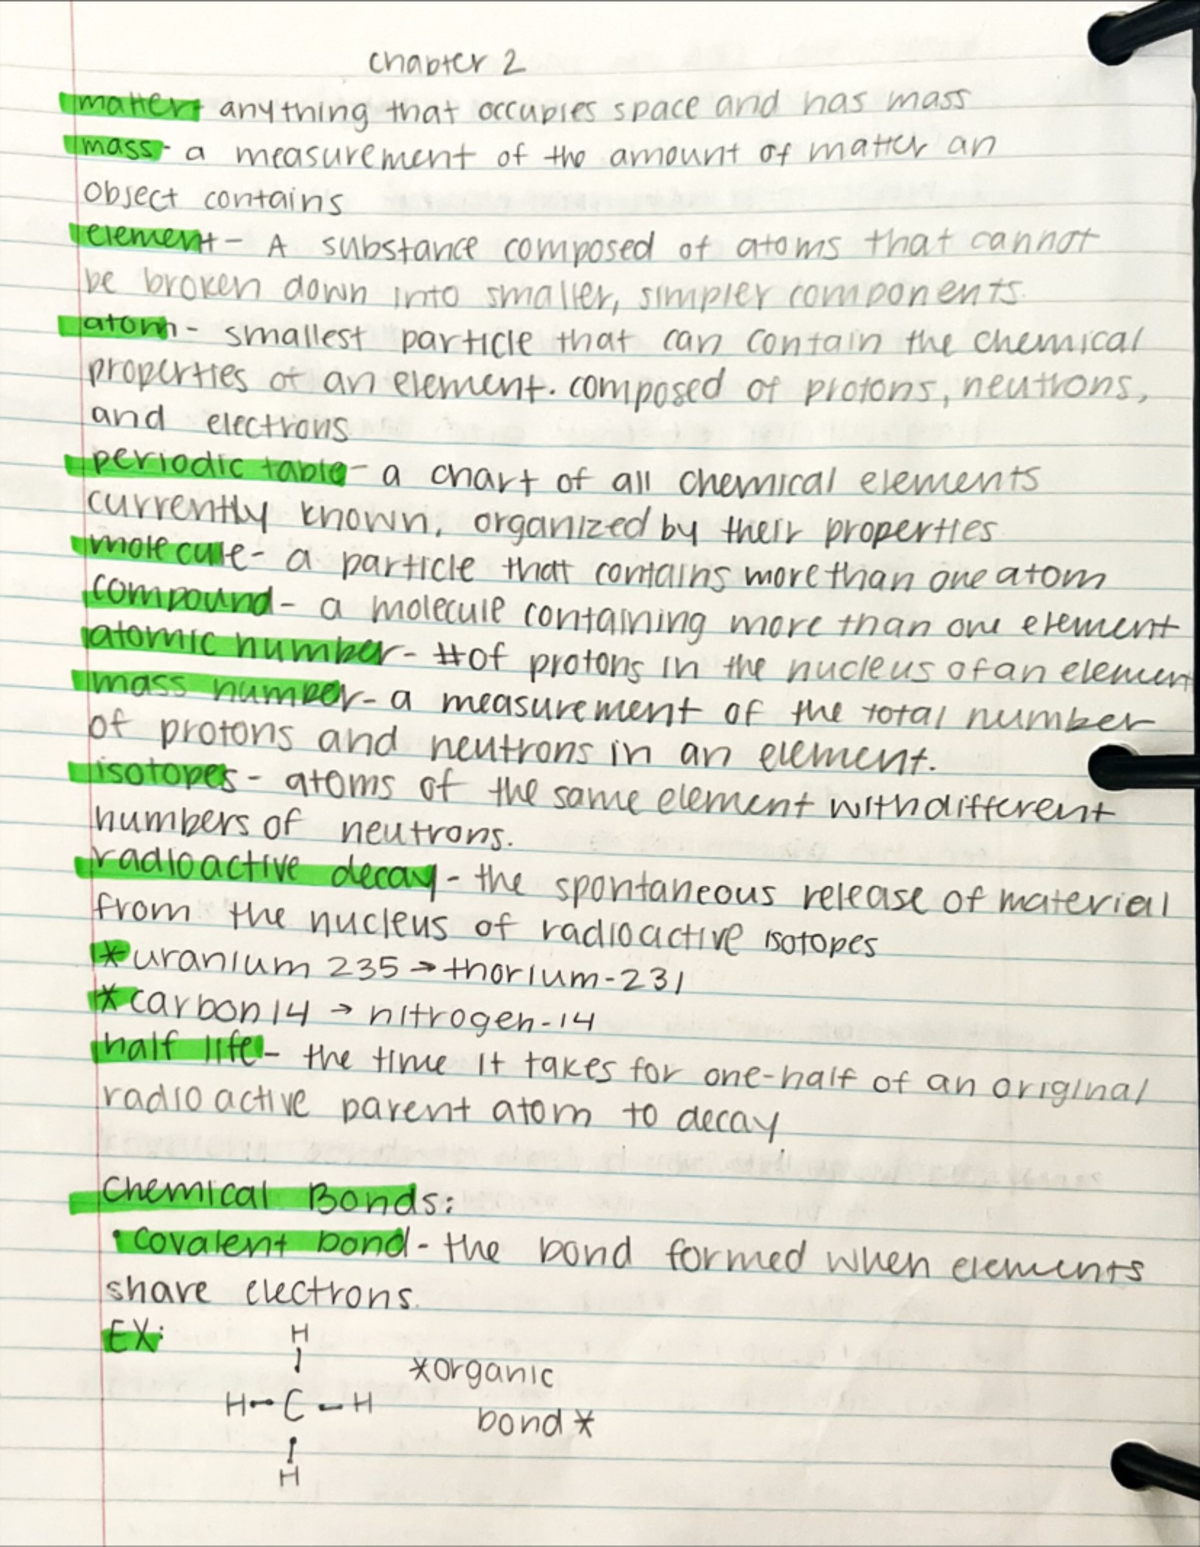 Chapter 2
matter- anything that occupies space and has mass
mass- a measurement of the amount of matter an
object contains
element- A substance composed of atoms that cannot
be broken down into smaller, simpler components.
atom- smallest particle that can contain the chemical
properties of an element. composed of protons, neutrons,
and electrons
periodic table- a chart of all chemical elements
currently known, organized by their properties
molecule- a particle that contains more than one atom
compound- a molecule containing more than one element
atomic number- # of protons in the nucleus of an element
mass number- a measurement of the total number
of protons and neutrons in an element.
isotopes- atoms of the same element with different
numbers of neutrons.
radioactive decay- the spontaneous release of material
from the nucleus of radioactive isotopes
*uranium 235→thorium-231
*carbon 14 → nitrogen-14
half life- the time it takes for one-half of an original
radioactive parent atom to decay
Chemical Bonds:
• Covalent bond- the bond formed when elements
share electrons.
EX:
H
*organic
H-C-H
bond*
H